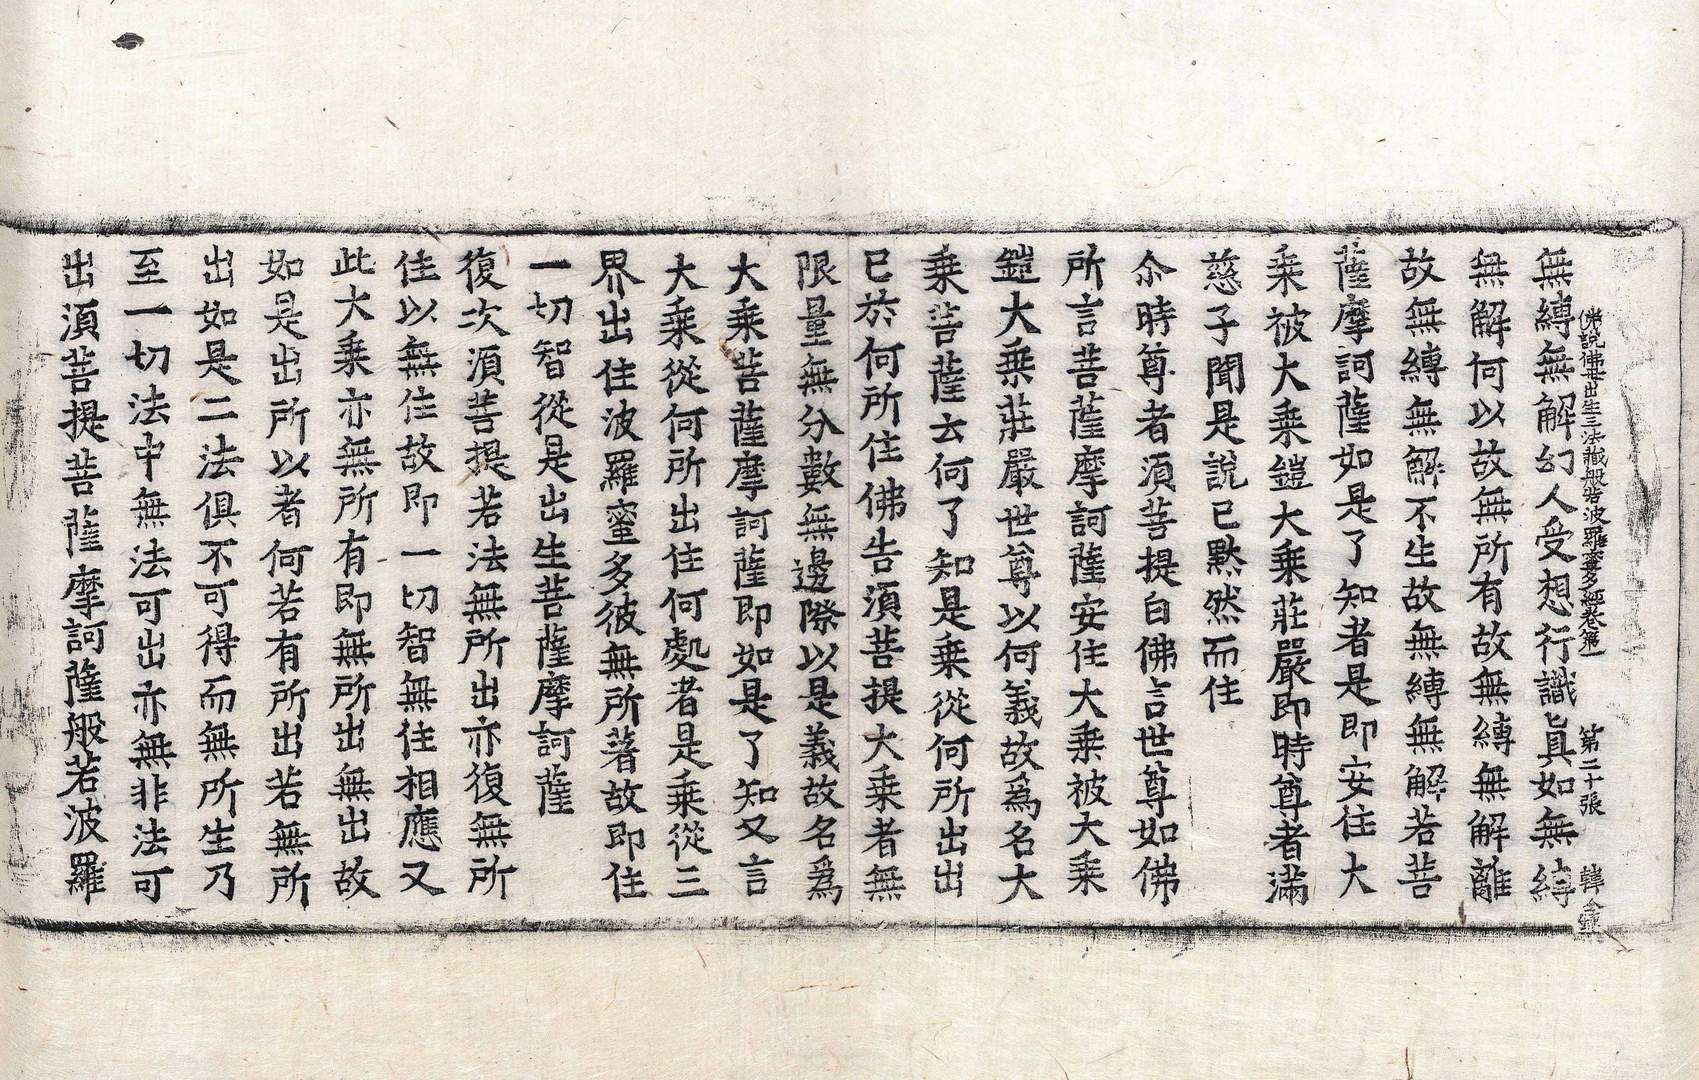 佛說佛母出生三法藏般若波羅蜜多經卷第一 第二十張 韓
無縛無解幻人受想行識真如無縛
無解何以故無所有故無縛無解離
故無縛無解不生故無縛無解若菩
薩摩訶薩如是了知者是即安住大
乗被大乗鎧大乗莊嚴即時尊者滿
慈子聞是說已黙然而住
尒時尊者須菩提白佛言世尊如佛
所言菩薩摩訶薩安住大乗被大乗
鎧大乗莊嚴世尊以何義故為名大
乗菩薩云何了知是乗從何所出出
已於何所住佛告須菩提大乗者無
限量無分數無邊際以是義故名為
大乗菩薩摩訶薩即如是了知又言
大乗從何所出住何處者是乗從三
界出住波羅蜜多彼無所著故即住
一切智從是出生菩薩摩訶薩
復次須菩提若法無所出亦復無所
住以無住故即一切智無住相應又
此大乗亦無所有即無所出無出故
如是出所以者何若有所出若無所
出如是二法俱不可得而無所生乃
至一切法中無法可出亦無非法可
出須菩提菩薩摩訶薩般若波羅